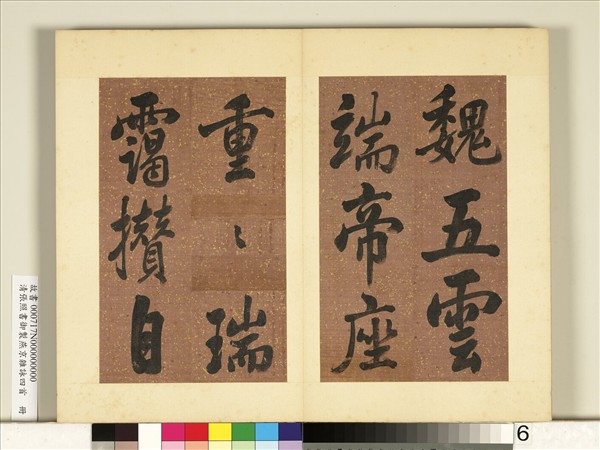 魏五雲
端帝座
重〻瑞
靄攢自
故書000717N000000000
清張照書御製燕京雜詠四首 冊
6